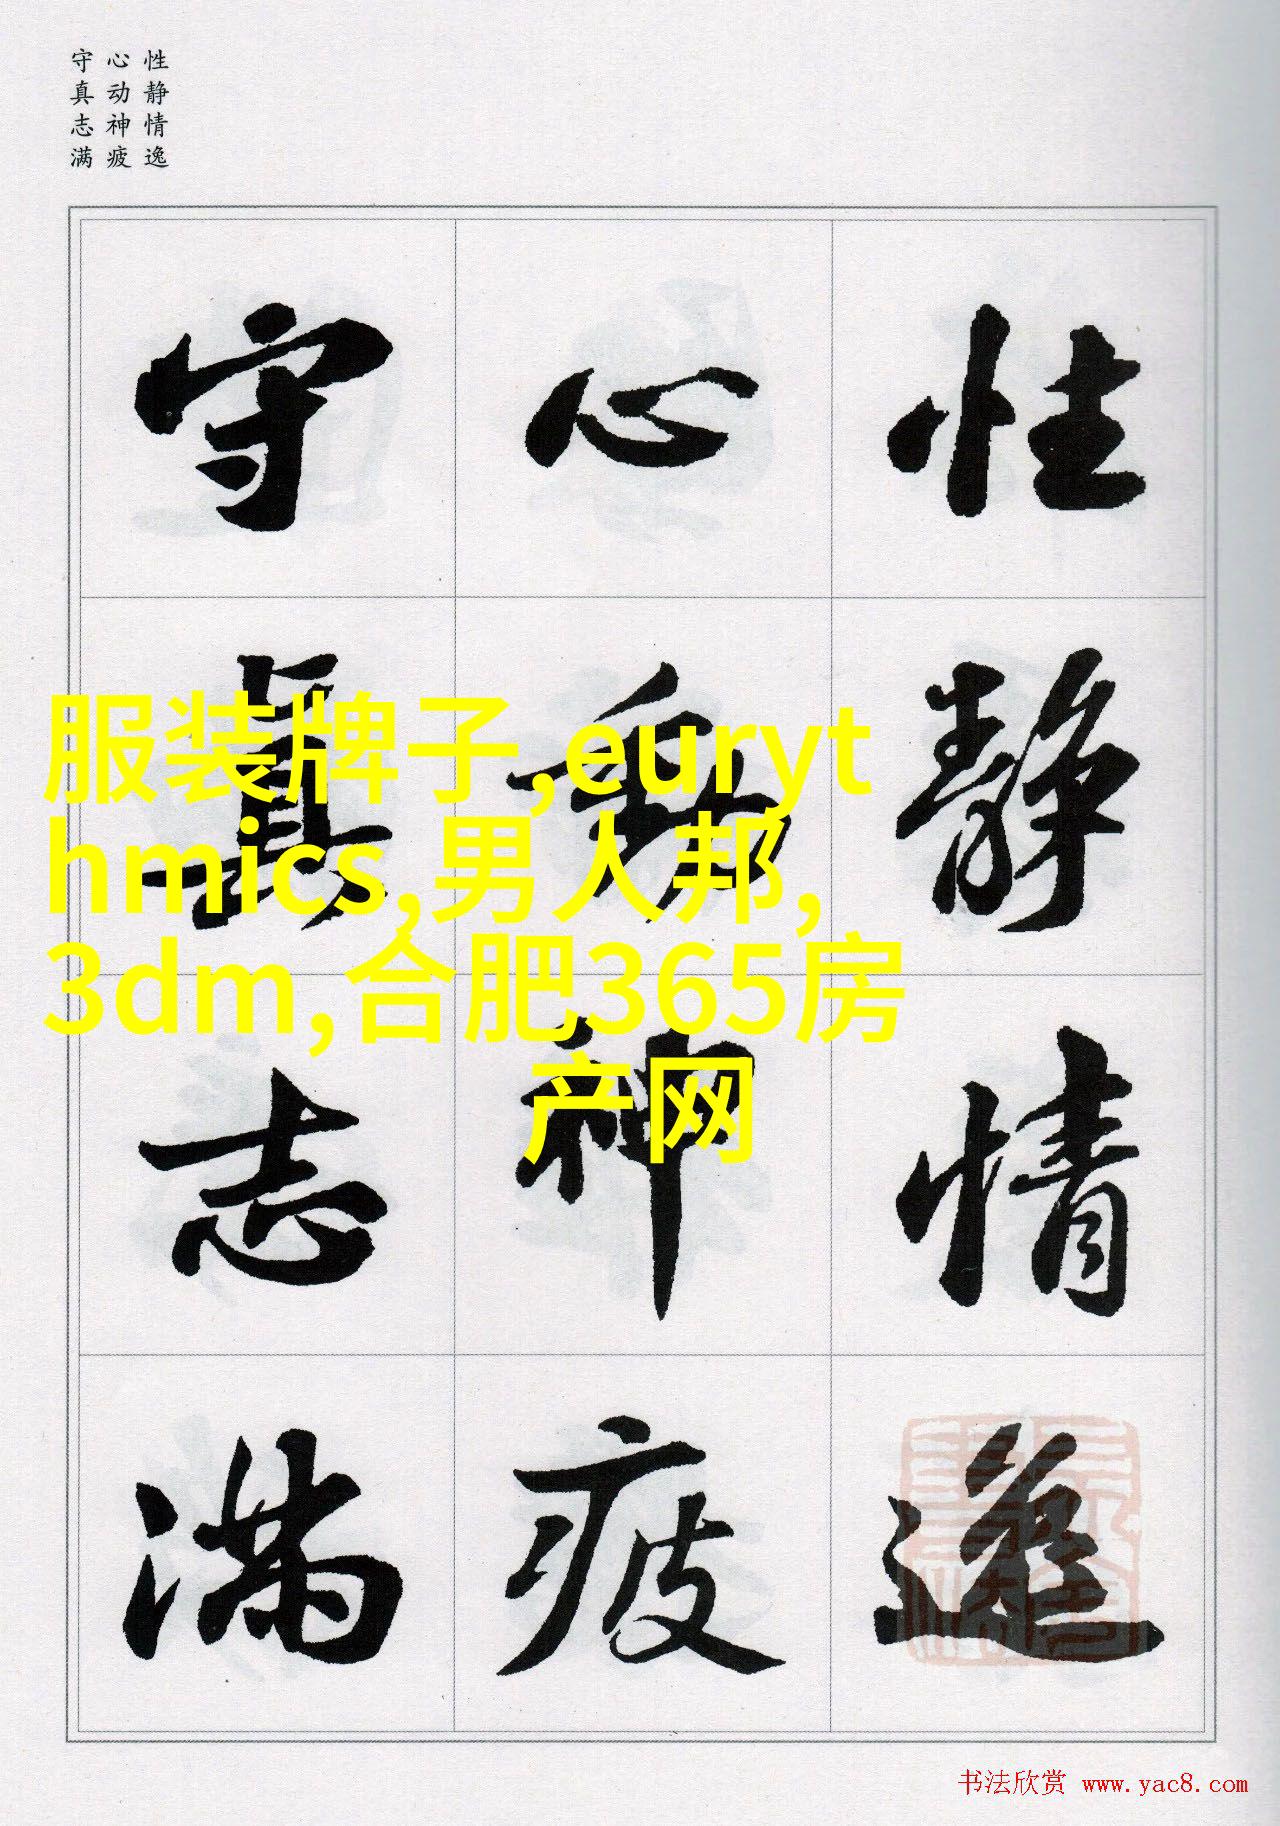 性静情逸
心动神疲
守真志满
性静情逸
心動神疲
守真志满
服装牌子,euryt
hmics,男人邦,
3dm,合肥365房
产网
书法欣赏 www.yac8.com